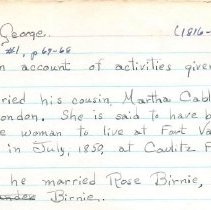 George. (1816-
#1, p 67-68
n account of activities give
ried his cousin, Martha Cabl
ondon. She is said to have b
e woman to live at Fort Va
in July, 1850, at Cowlitz F
he married Rose Birnie,
Birnie.